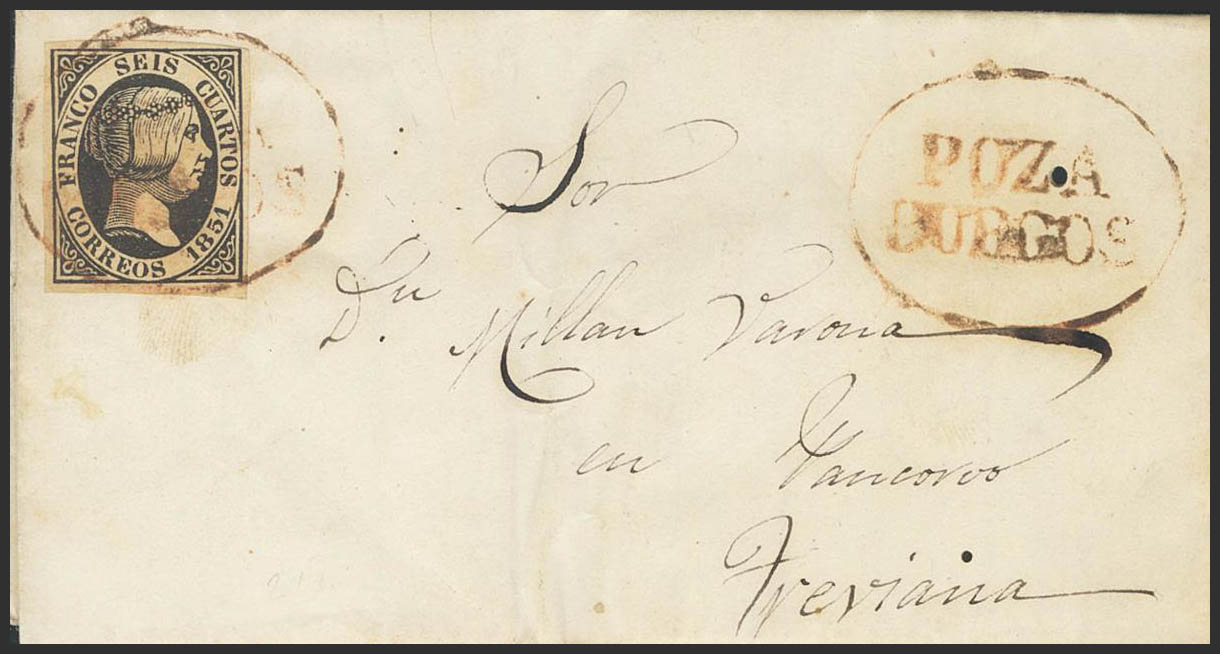 FRANCO SEIS CUARTOS
CORREOS 1851
POZA
BURGOS
Sor
Dn Millan Varona
en Pancorvo
Treviana